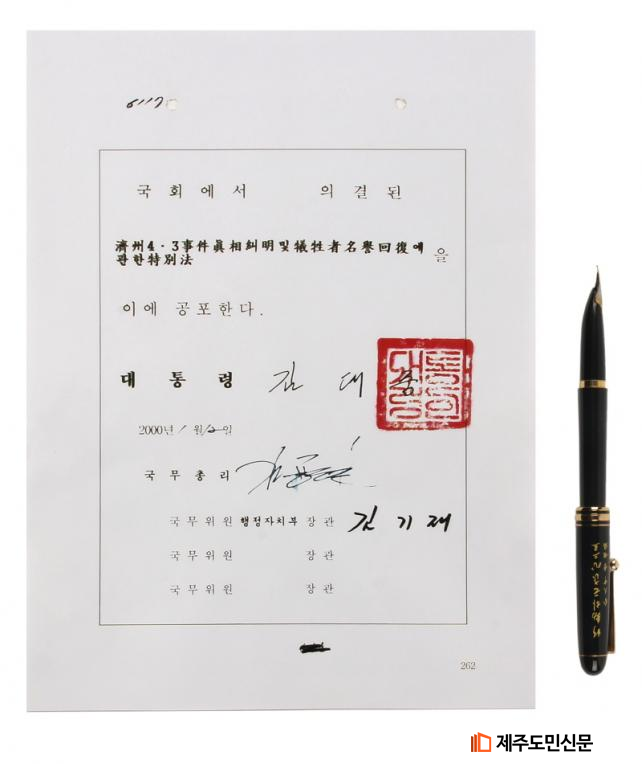 6117
국회에서 의결된
濟州4·3事件眞相糾明및犧牲者名譽回復에
관한特別法 을
이에 공포한다.
대통령 김대중
2000년 1월 12일
국무총리
국무위원 행정자치부 장관 김기재
국무위원 장관
국무위원 장관
262
제주도민신문